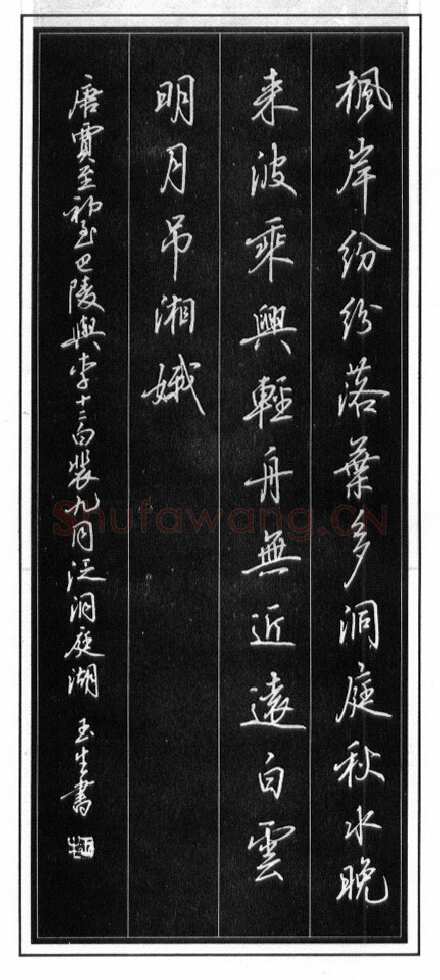 楓岸紛紛落葉多洞庭秋水晚
来波乘興輕舟無近遠白雲
明月吊湘娥
唐賈至初至巴陵與李十二白裴九同泛洞庭湖 玉生書
Shufawang.CN